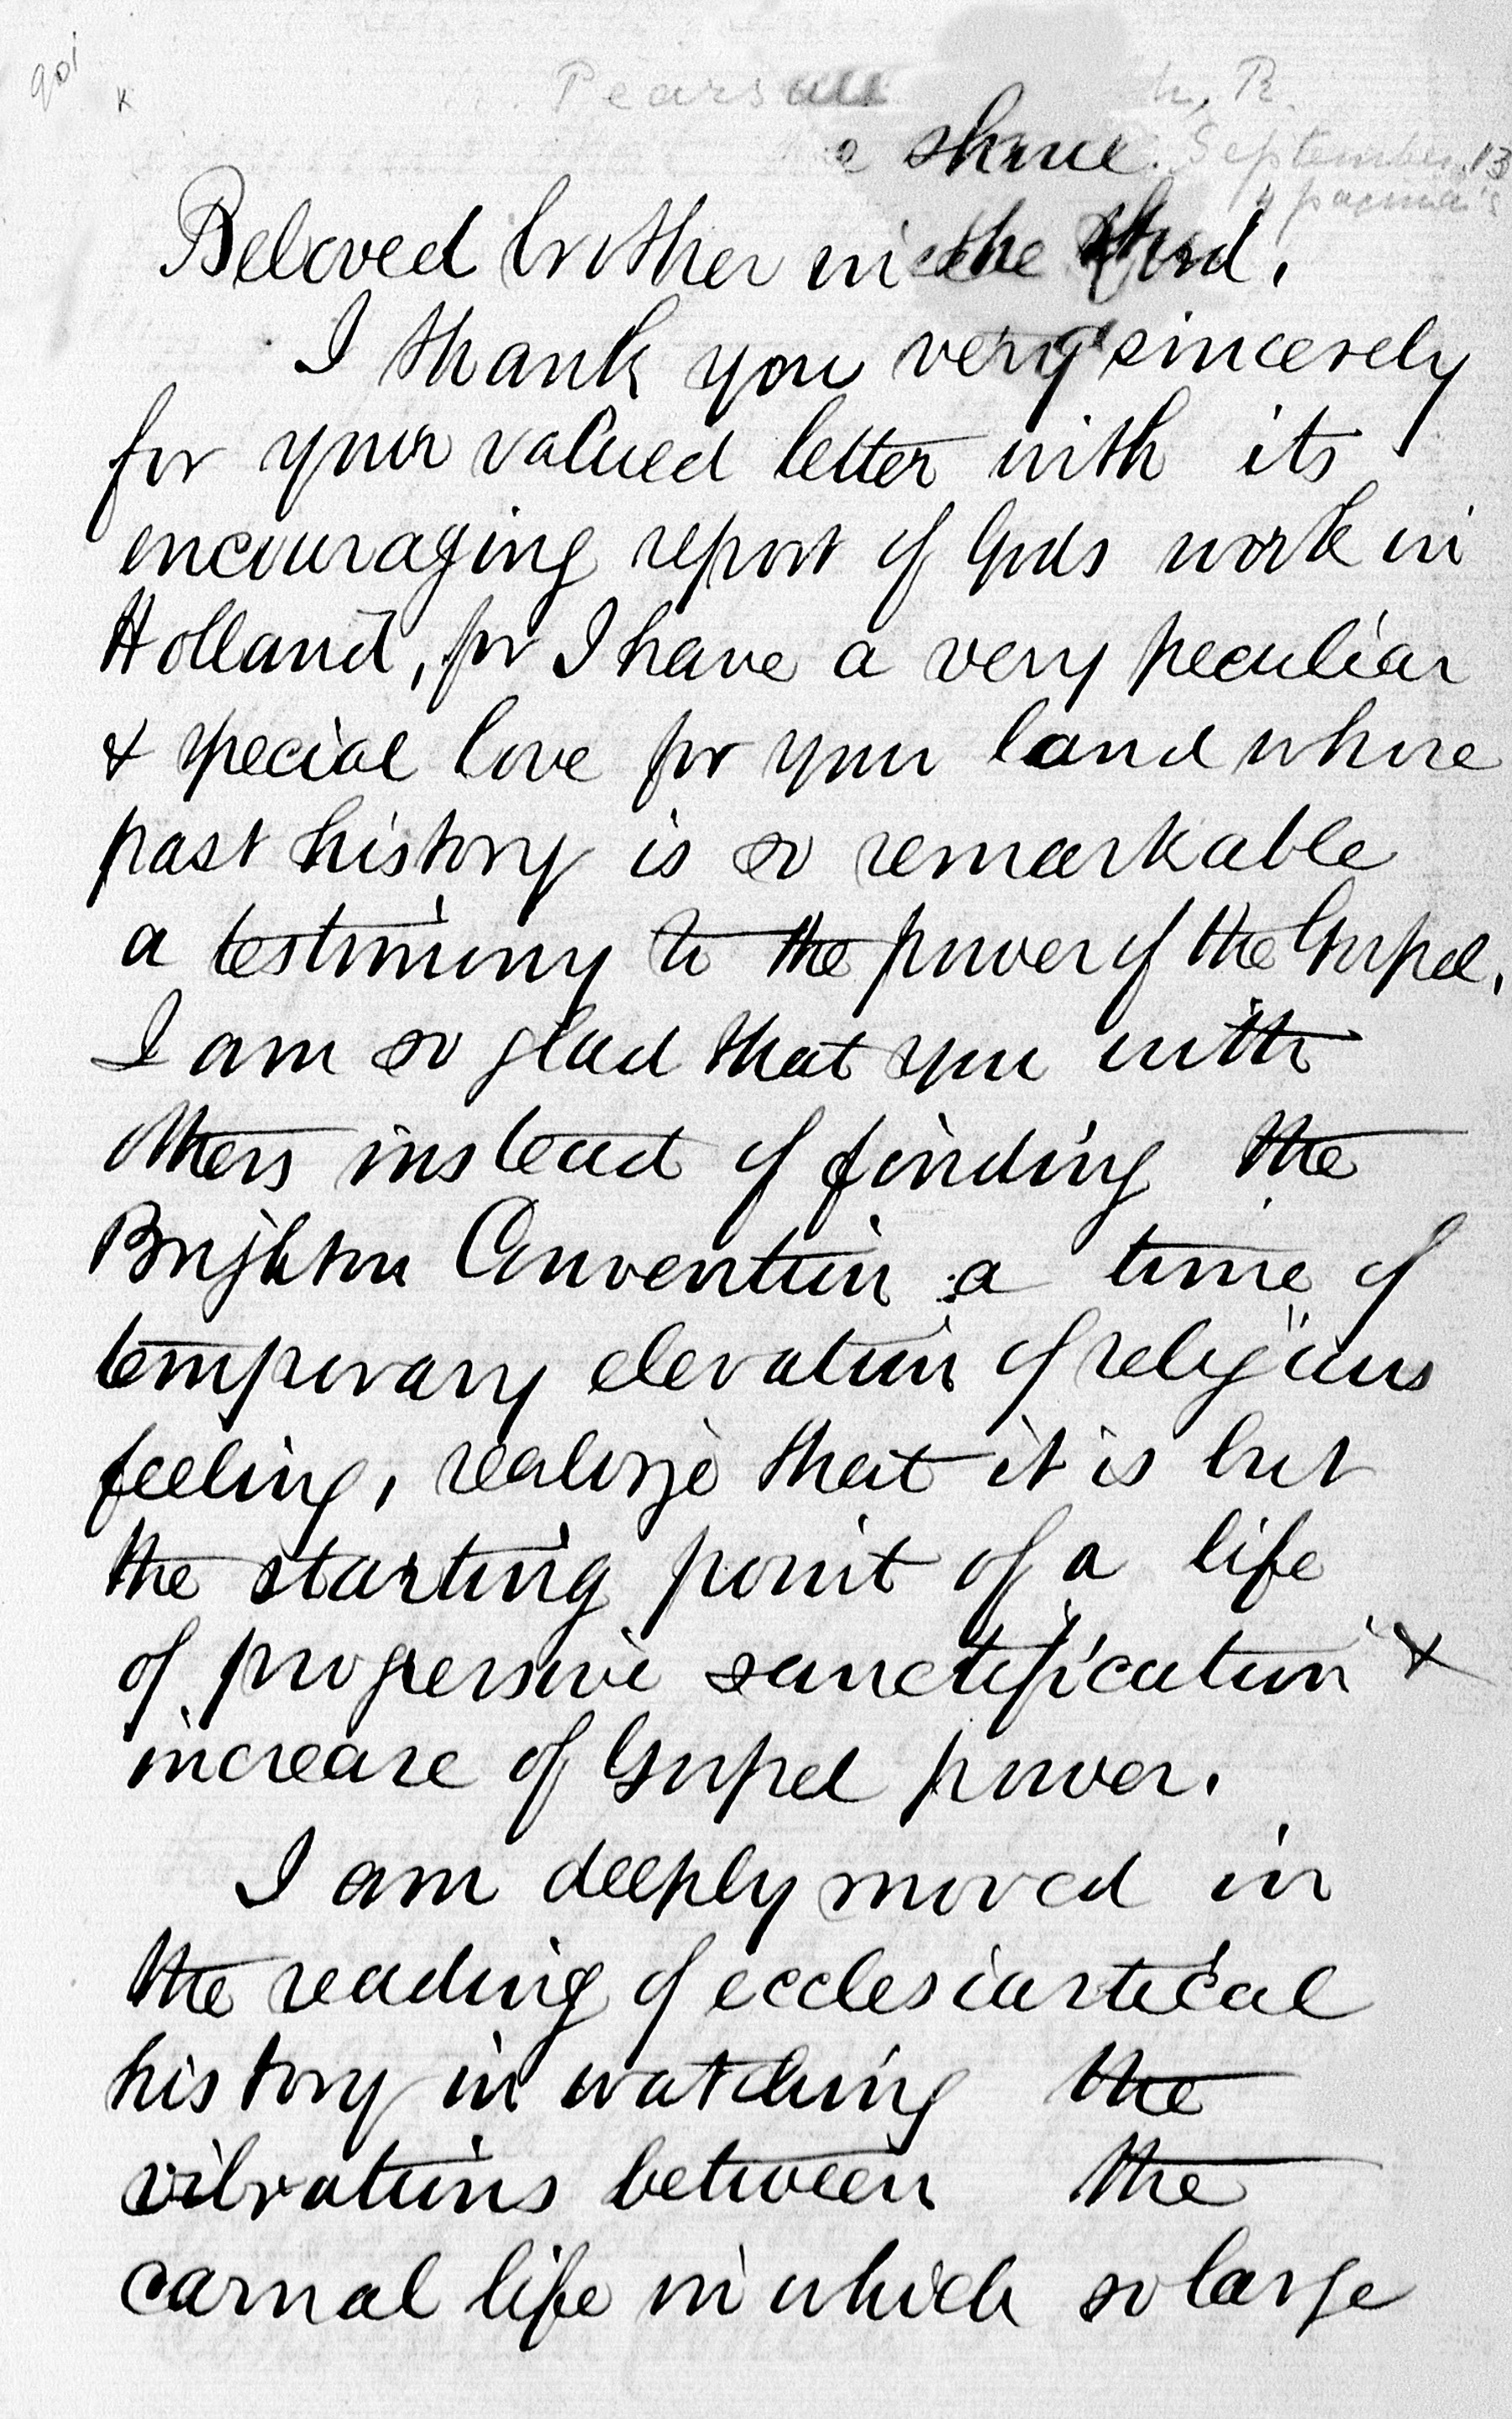 Pearsall
September 13
4 pagina's
Beloved brother in the Lord,
I thank you very sincerely
for your valued letter with its
encouraging report of Gods work in
Holland, for I have a very peculiar
& special love for your land whose
past history is so remarkable
a testimony to the power of the Gospel.
I am so glad that you with
others instead of finding the
Brighton Convention a time of
temporary elevation of religious
feeling, realize that it is but
the starting point of a life
of progressive sanctification &
increase of Gospel power.
I am deeply moved in
the reading of ecclesiastical
history in watching the
vibrations between the
carnal life in which so large